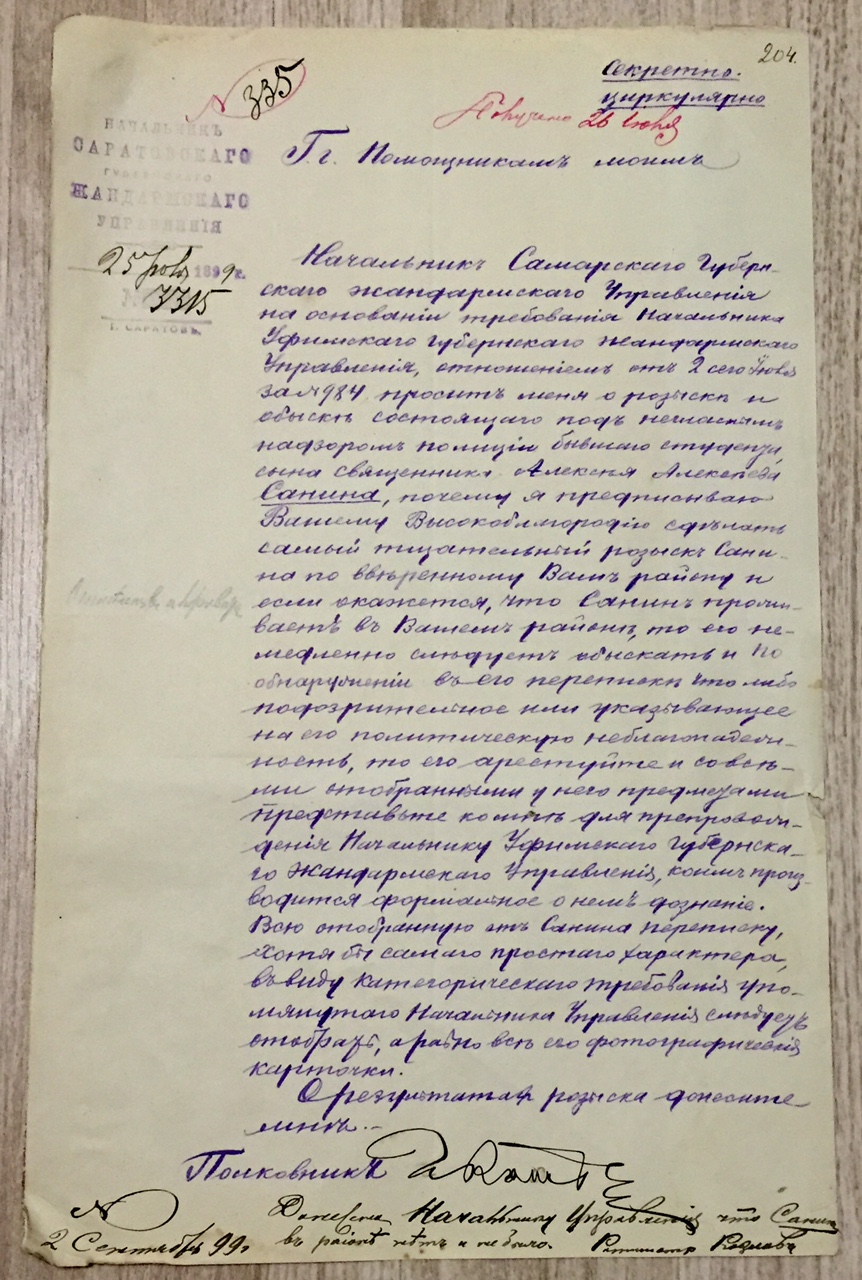 204.
№ 335
Секретно.
циркулярно
Получено 26 Июля
НАЧАЛЬНИКЪ
САРАТОВСКАГО
ГУБЕРНСКАГО
ЖАНДАРМСКАГО
УПРАВЛЕНІЯ
25 Июля 1899 г.
№ 3315
Г. САРАТОВЪ.
Г.г. Помощникамъ моимъ
Начальникъ Самарскаго Губерн-
скаго Жандармскаго Управленія
на основаніи требованія Начальника
Уфимскаго Губернскаго Жандармскаго
Управленія, отношеніемъ отъ 2 сего Іюля
за № 984 проситъ меня о розыскѣ и
обыскѣ состоящаго подъ негласнымъ
надзоромъ полиціи бывшаго студента,
сына священника Алексѣя Алексѣева
Санина, почему я предписываю
Вашему Высокоблагородію сдѣлать
самый тщательный розыскъ Сани-
на по ввѣренному Вамъ району и
если окажется, что Санинъ прожи-
ваетъ въ Вашемъ районѣ, то его не-
медленно слѣдуетъ обыскать и по
обнаруженіи въ его перепискѣ что либо
подозрительное или указывающее
на его политическую неблагонадеж-
ность, то его арестуйте и со всѣ-
ми отобранными у него предметами
представьте ко мнѣ для препровож-
денія Начальнику Уфимскаго Губернска-
го Жандармскаго Управленія, коимъ произ-
водится формальное о немъ дознаніе.
Всю отобранную отъ Санина переписку,
хотя бы самаго простаго характера,
въ виду категорическаго требованія упо-
мянутаго Начальника Управленія слѣдуетъ
отобрать, а равно всѣ его фотографическія
карточки.
О результатахъ розыска донесите
мнѣ.
Полковникъ
№
2 Сентября 99 г.
Донесено Начальнику Управленія что Санина
въ районѣ нѣтъ и не было. Ротмистръ Козловъ